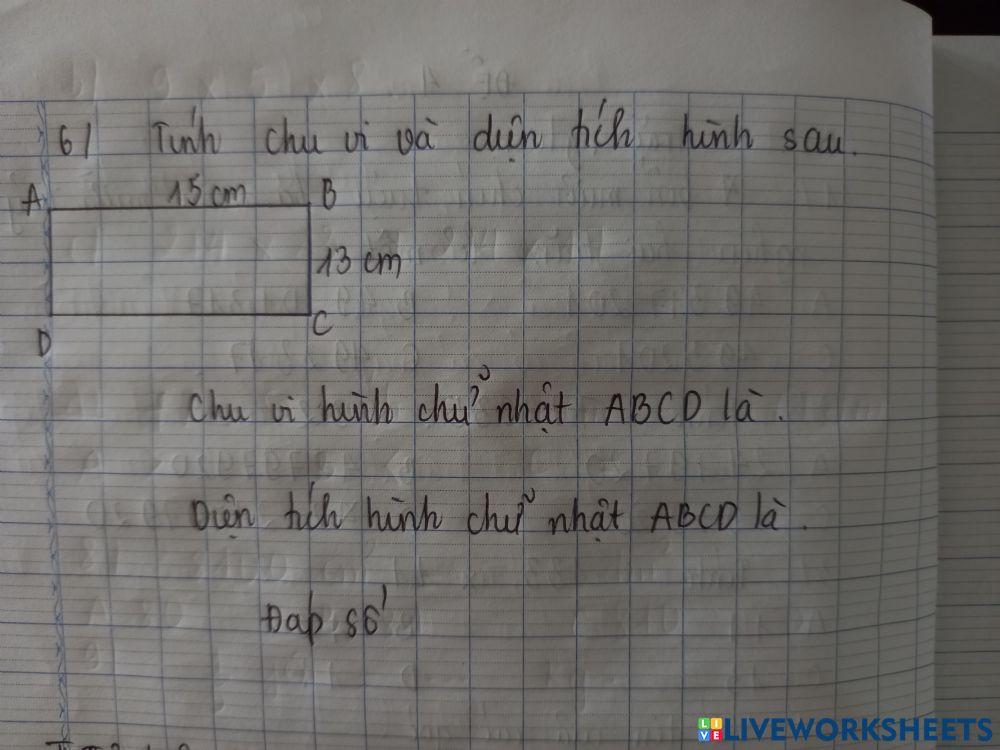 6/ Tính chu vi và diện tích hình sau.
A 15 cm B
13 cm
D C
Chu vi hình chữ nhật ABCD là.
Diện tích hình chữ nhật ABCD là.
Đáp số
LIVEWORKSHEETS